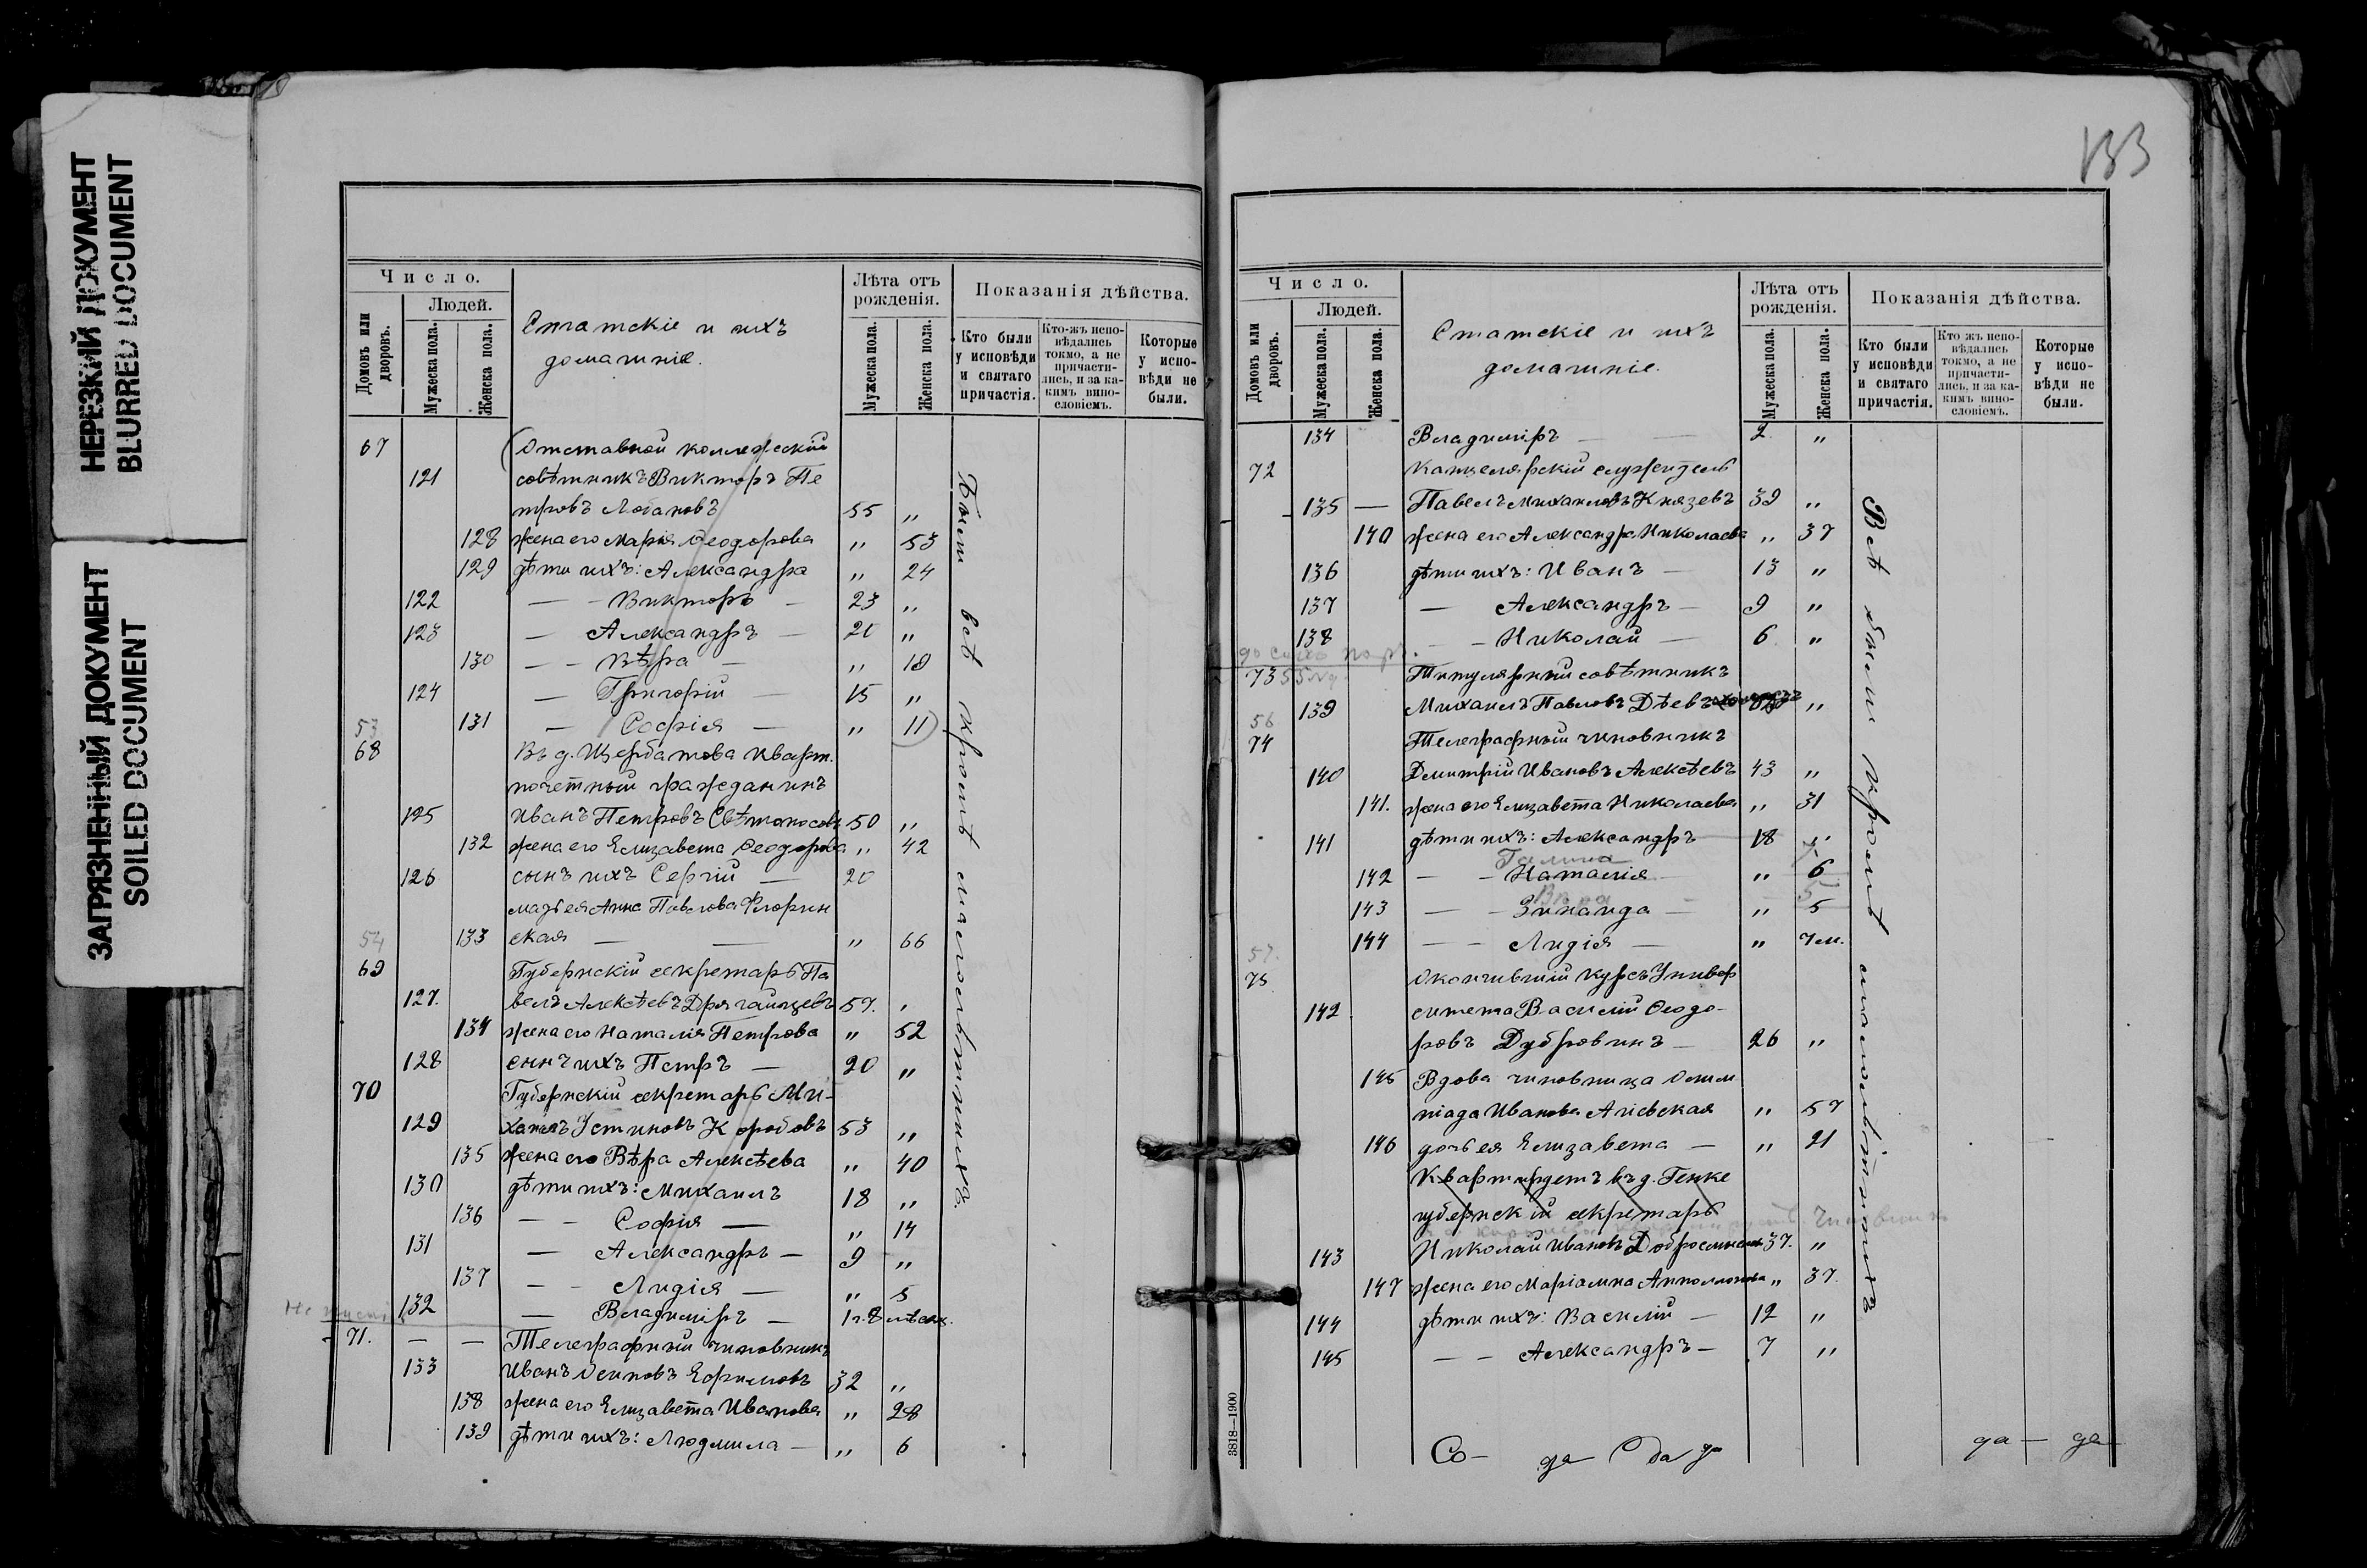 НЕРЕЗКИЙ ДОКУМЕНТ
BLURRED DOCUMENT
ЗАГРЯЗНЕННЫЙ ДОКУМЕНТ
SOILED DOCUMENT
Число.
Людей.
Домовъ или дворовъ.
Мужеска пола.
Женска пола.
Статскіе и ихъ
домашніе.
Лѣта отъ
рожденія.
Мужеска пола.
Женска пола.
Показанія дѣйства.
Кто были
у исповѣди
и святаго
причастія.
Кто-жъ испо-
вѣдались
токмо, а не
причасти-
лись, и за ка-
кимъ вино-
словіемъ.
Которые
у испо-
вѣди не
были.
67 Отставной коллежскій
121 совѣтникъ Викторъ Пе
тровъ Лобановъ 55 "
128 жена его Марія Ѳеодорова " 53
129 дѣти ихъ: Александра " 24
122 — - Викторъ - 23 "
123 — Александръ — 20 "
130 — - Вѣра — " 18
124 — Григорій — 15 "
131 — Софія — " 11)
53
68 Въ д. Щербатова кварт.
почетный гражданинъ
125 Иванъ Петровъ Свѣтоносовъ 50 "
132 жена его Елизавета Ѳеодорова " 42
126 сынъ ихъ Сергій — 20
мать ея Анна Павлова Флорин
54 133 ская — — " 66
69 Губернскій секретарь Па
127. велъ Алексѣевъ 57. "
134 жена его Наталія Петрова " 52
128 сынъ ихъ Петръ — 20 "
70 Губернскій секретарь Ми-
129 хаилъ Устиновъ Коробовъ 53 "
135 жена его Вѣра Алексѣева " 40
130 дѣти ихъ: Михаилъ 18 "
136 — - Софія — " 14
131 — Александръ — 9 "
137 — - Лидія — " 5
132 — Владиміръ — 1 г. 8 мѣсяц.
71. — — Телеграфный чиновникъ
133 Иванъ Осиповъ Ефимовъ 32 "
138 жена его Елизавета Иванова " 28
139 дѣти ихъ: Людмила — " 6
Были всѣ кромѣ малолѣтнихъ.
133
Число.
Людей.
Домовъ или дворовъ.
Мужеска пола.
Женска пола.
Статскіе и ихъ
домашніе.
Лѣта отъ
рожденія.
Мужеска пола.
Женска пола.
Показанія дѣйства.
Кто были
у исповѣди
и святаго
причастія.
Кто жъ испо-
вѣдались
токмо, а не
причасти-
лись, и за ка-
кимъ вино-
словіемъ.
Которые
у испо-
вѣди не
были.
134 Владиміръ — — 2 "
72 Канцелярскій служитель
135 — Павелъ Михаиловъ Князевъ 39 "
140 жена его Александра Николаева " 37
136 дѣти ихъ: Иванъ — 13 "
137 — Александръ — 9 "
138 - Николай — 6 "
73 55 Титулярный совѣтникъ
139 Михаилъ Павловъ Дѣевъ "
56
74 Телеграфный чиновникъ
140 Дмитрій Ивановъ Алексѣевъ 43 "
141. жена его Елизавета Николаева " 31
141 дѣти ихъ: Александръ — 18 "
Галина 7
142 — - Наталія " 6
Вѣра 5
143 — - Зинаида — " 5
144 — - Лидія — " 7 м.
57.
75 Окончившій курсъ Универ
142 ситета Василій Ѳеодо-
ровъ Дубровинъ — 26 "
145 Вдова чиновница Олим
піада Иванова Агіевская " 57
146 дочь ея Елизавета — " 21
Квартируетъ въ д. Генке
губернскій секретарь
143 Николай Ивановъ 37. "
147 жена его Маріамна Апполлонова " 37.
144 дѣти ихъ: Василій — 12 "
145 — - Александръ — 7 "
Всѣ были кромѣ малолѣтнихъ
Со- да да — да
3818—1900